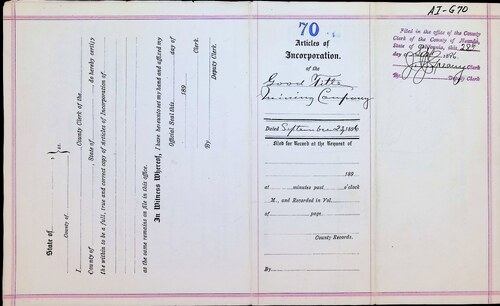 AI-G70
70
Articles of
Incorporation.
of the
Good Title
Mining Company
Dated September 1896
Filed for Record at the Request of
189
at minutes past o'clock
M., and Recorded in Vol.
of page
County Records.
By
Filed in the office of the County
Clerk of the County of Nevada,
State of California, this 22
day of 1896.
Clerk
By Deputy Clerk
State of
County of
ss.
I County Clerk of the
County of , State of , do hereby certify
the within to be a full, true and correct copy of Articles of Incorporation of
as the same remains on file in this office.
In Witness Whereof, I have hereunto set my hand and affixed my
Official Seal this day of
189
Clerk.
By Deputy Clerk.